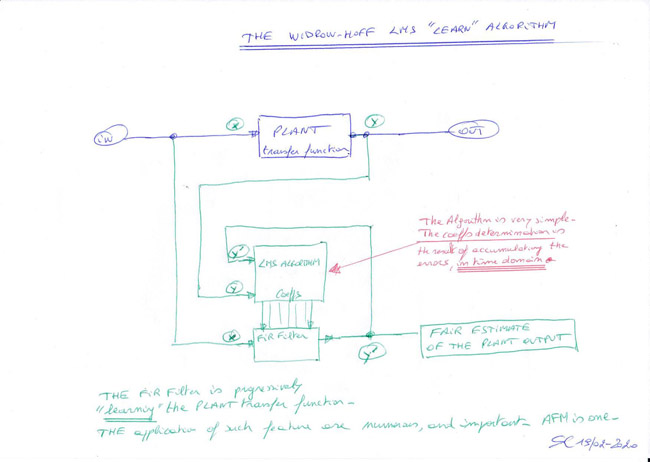 THE WIDROW-HOFF LMS "LEARN" ALGORITHM
IN
X
PLANT
transfer function
Y
OUT
The Algorithm is very simple-
The coeffs determination is
the result of accumulating the
errors, in time domain.
Y'
LMS ALGORITHM
Y
Coeffs
X
FiR Filter
Y'
FAIR ESTIMATE
OF THE PLANT OUTPUT
THE FiR Filter is progressively
"learning" the PLANT transfer function-
THE application of such feature are numerous, and important- AFM is one-
SC 19/02-2020